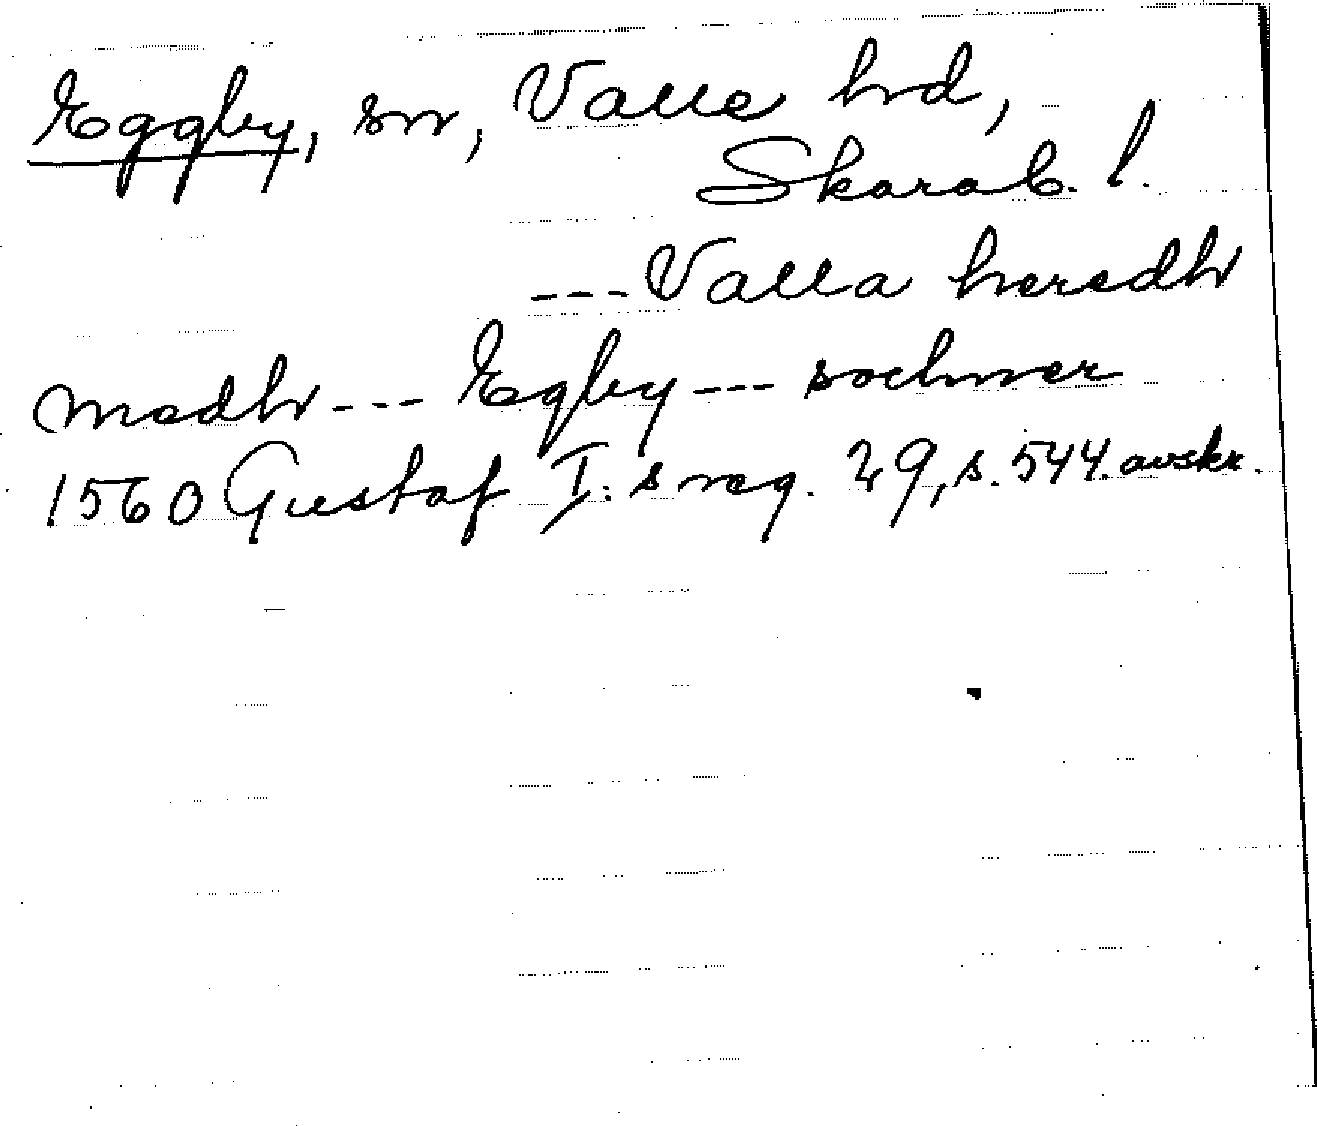 Eggby, sn, Valle hd,
Skarab. l.
---Valla heredh
medh --- Egby --- sochner
1560 Gustaf I:s reg. 29, s. 544. avskr.